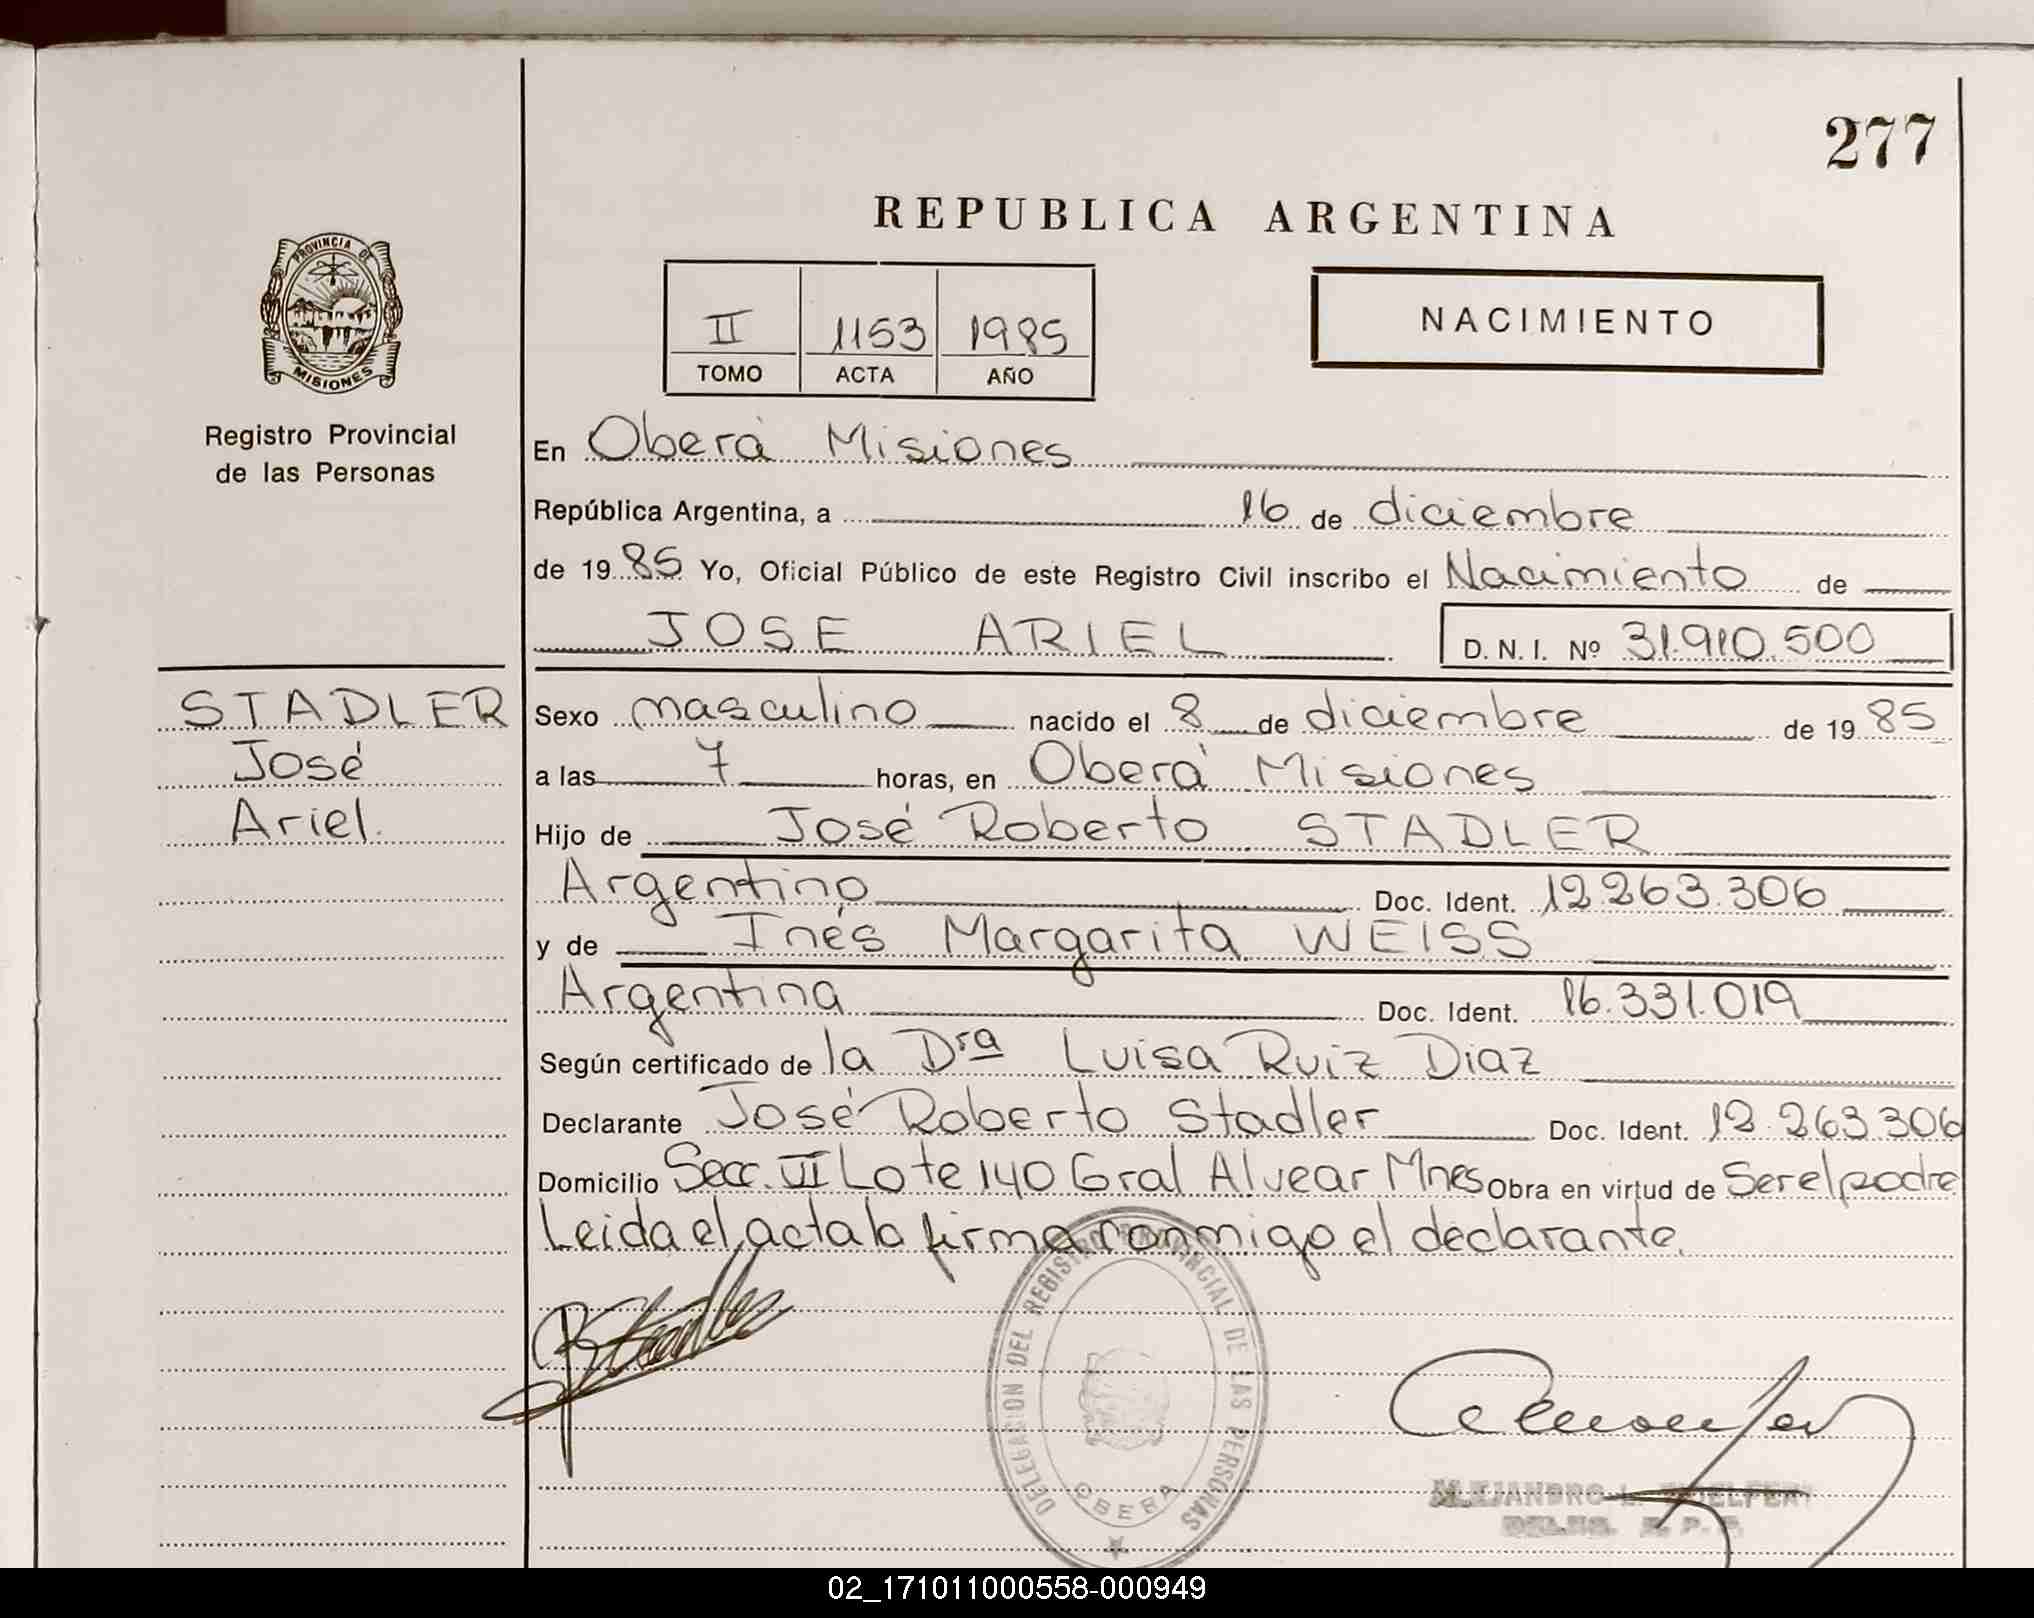 277
REPUBLICA ARGENTINA
PROVINCIA DE
MISIONES
Registro Provincial
de las Personas
II 1153 1985
TOMO ACTA AÑO
NACIMIENTO
En Oberá Misiones
República Argentina, a 16 de diciembre
de 1985 Yo, Oficial Público de este Registro Civil inscribo el Nacimiento de
JOSE ARIEL D.N.I. Nº 31.910.500
STADLER
José
Ariel.
Sexo masculino nacido el 8 de diciembre de 1985
a las 7 horas, en Oberá Misiones
Hijo de José Roberto STADLER
Argentino Doc. Ident. 12.263.306
y de Inés Margarita WEISS
Argentina Doc. Ident. 16.331.019
Según certificado de la Dra Luisa Ruiz Diaz
Declarante José Roberto Stadler Doc. Ident. 12.263.306
Domicilio Secc. VI Lote 140 Gral Alvear Mnes Obra en virtud de Ser el padre
Leida el acta la firma conmigo el declarante.
DELEGACION DEL REGISTRO PROVINCIAL DE LAS PERSONAS
OBERA
ALEJANDRO L.
02_171011000558-000949